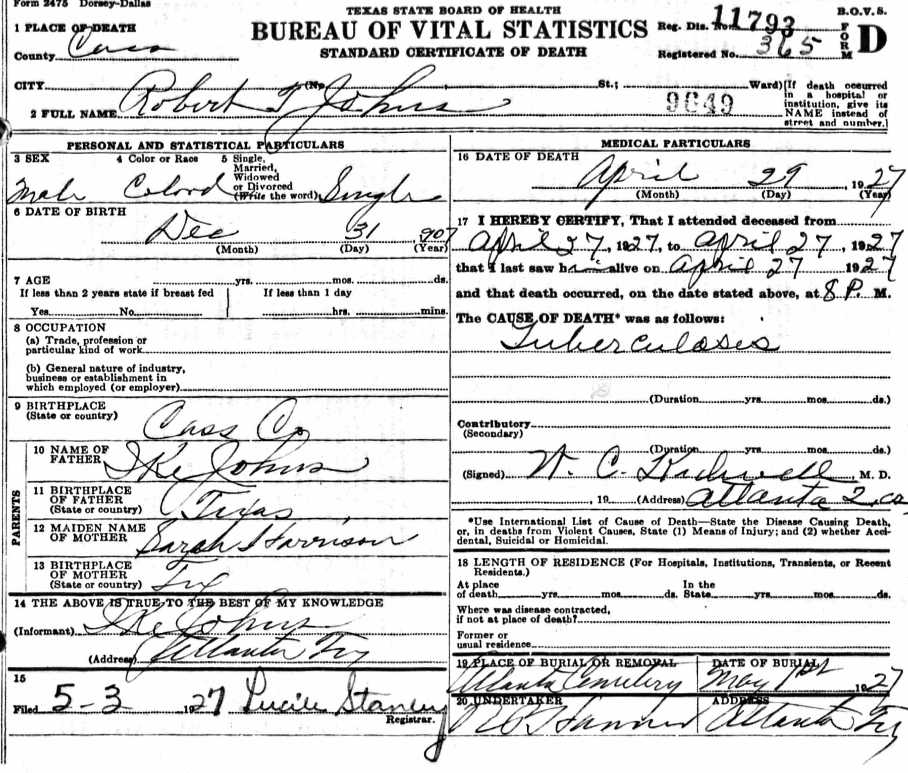 Form 2475 Dorsey-Dallas
TEXAS STATE BOARD OF HEALTH
BUREAU OF VITAL STATISTICS
STANDARD CERTIFICATE OF DEATH
B.O.V.S.
FORM D
Reg. Dis. No. 11793
Registered No. 365
1 PLACE OF DEATH
County Cass
CITY (No. St.; Ward)
(If death occurred in a hospital or institution, give its NAME instead of street and number.)
2 FULL NAME Robert T Johns
9649
PERSONAL AND STATISTICAL PARTICULARS
3 SEX Male
4 Color or Race Colord
5 Single, Married, Widowed or Divorced (Write the word) Single
6 DATE OF BIRTH
Dec 31 907
(Month) (Day) (Year)
7 AGE yrs. mos. ds.
If less than 2 years state if breast fed
Yes No
If less than 1 day
hrs. mins.
8 OCCUPATION
(a) Trade, profession or particular kind of work
(b) General nature of industry, business or establishment in which employed (or employer)
9 BIRTHPLACE
(State or country) Cass Co
PARENTS
10 NAME OF FATHER Ike Johns
11 BIRTHPLACE OF FATHER
(State or country) Texas
12 MAIDEN NAME OF MOTHER Sarah Harrison
13 BIRTHPLACE OF MOTHER
(State or country) Tex
14 THE ABOVE IS TRUE TO THE BEST OF MY KNOWLEDGE
(Informant) Ike Johns
(Address) Atlanta Tex
15
Filed 5-3 1927 Lucile Stanley
Registrar.
MEDICAL PARTICULARS
16 DATE OF DEATH
April 29 1927
(Month) (Day) (Year)
17 I HEREBY CERTIFY, That I attended deceased from
April 27, 1927, to April 27, 1927
that I last saw him alive on April 27 1927
and that death occurred, on the date stated above, at 8 P. M.
The CAUSE OF DEATH* was as follows:
Tuberculoses
(Duration yrs. mos. ds.)
Contributory
(Secondary)
(Duration yrs. mos. ds.)
(Signed) W. C. , M. D.
, 19 (Address) Atlanta
*Use International List of Cause of Death—State the Disease Causing Death, or, in deaths from Violent Causes, State (1) Means of Injury; and (2) whether Accidental, Suicidal or Homicidal.
18 LENGTH OF RESIDENCE (For Hospitals, Institutions, Transients, or Recent Residents.)
At place of death yrs. mos. ds.
In the State yrs. mos. ds.
Where was disease contracted, if not at place of death?
Former or usual residence
19 PLACE OF BURIAL OR REMOVAL
Atlanta Cemetery
DATE OF BURIAL
May 1st 1927
20 UNDERTAKER
ADDRESS
Atlanta Tex